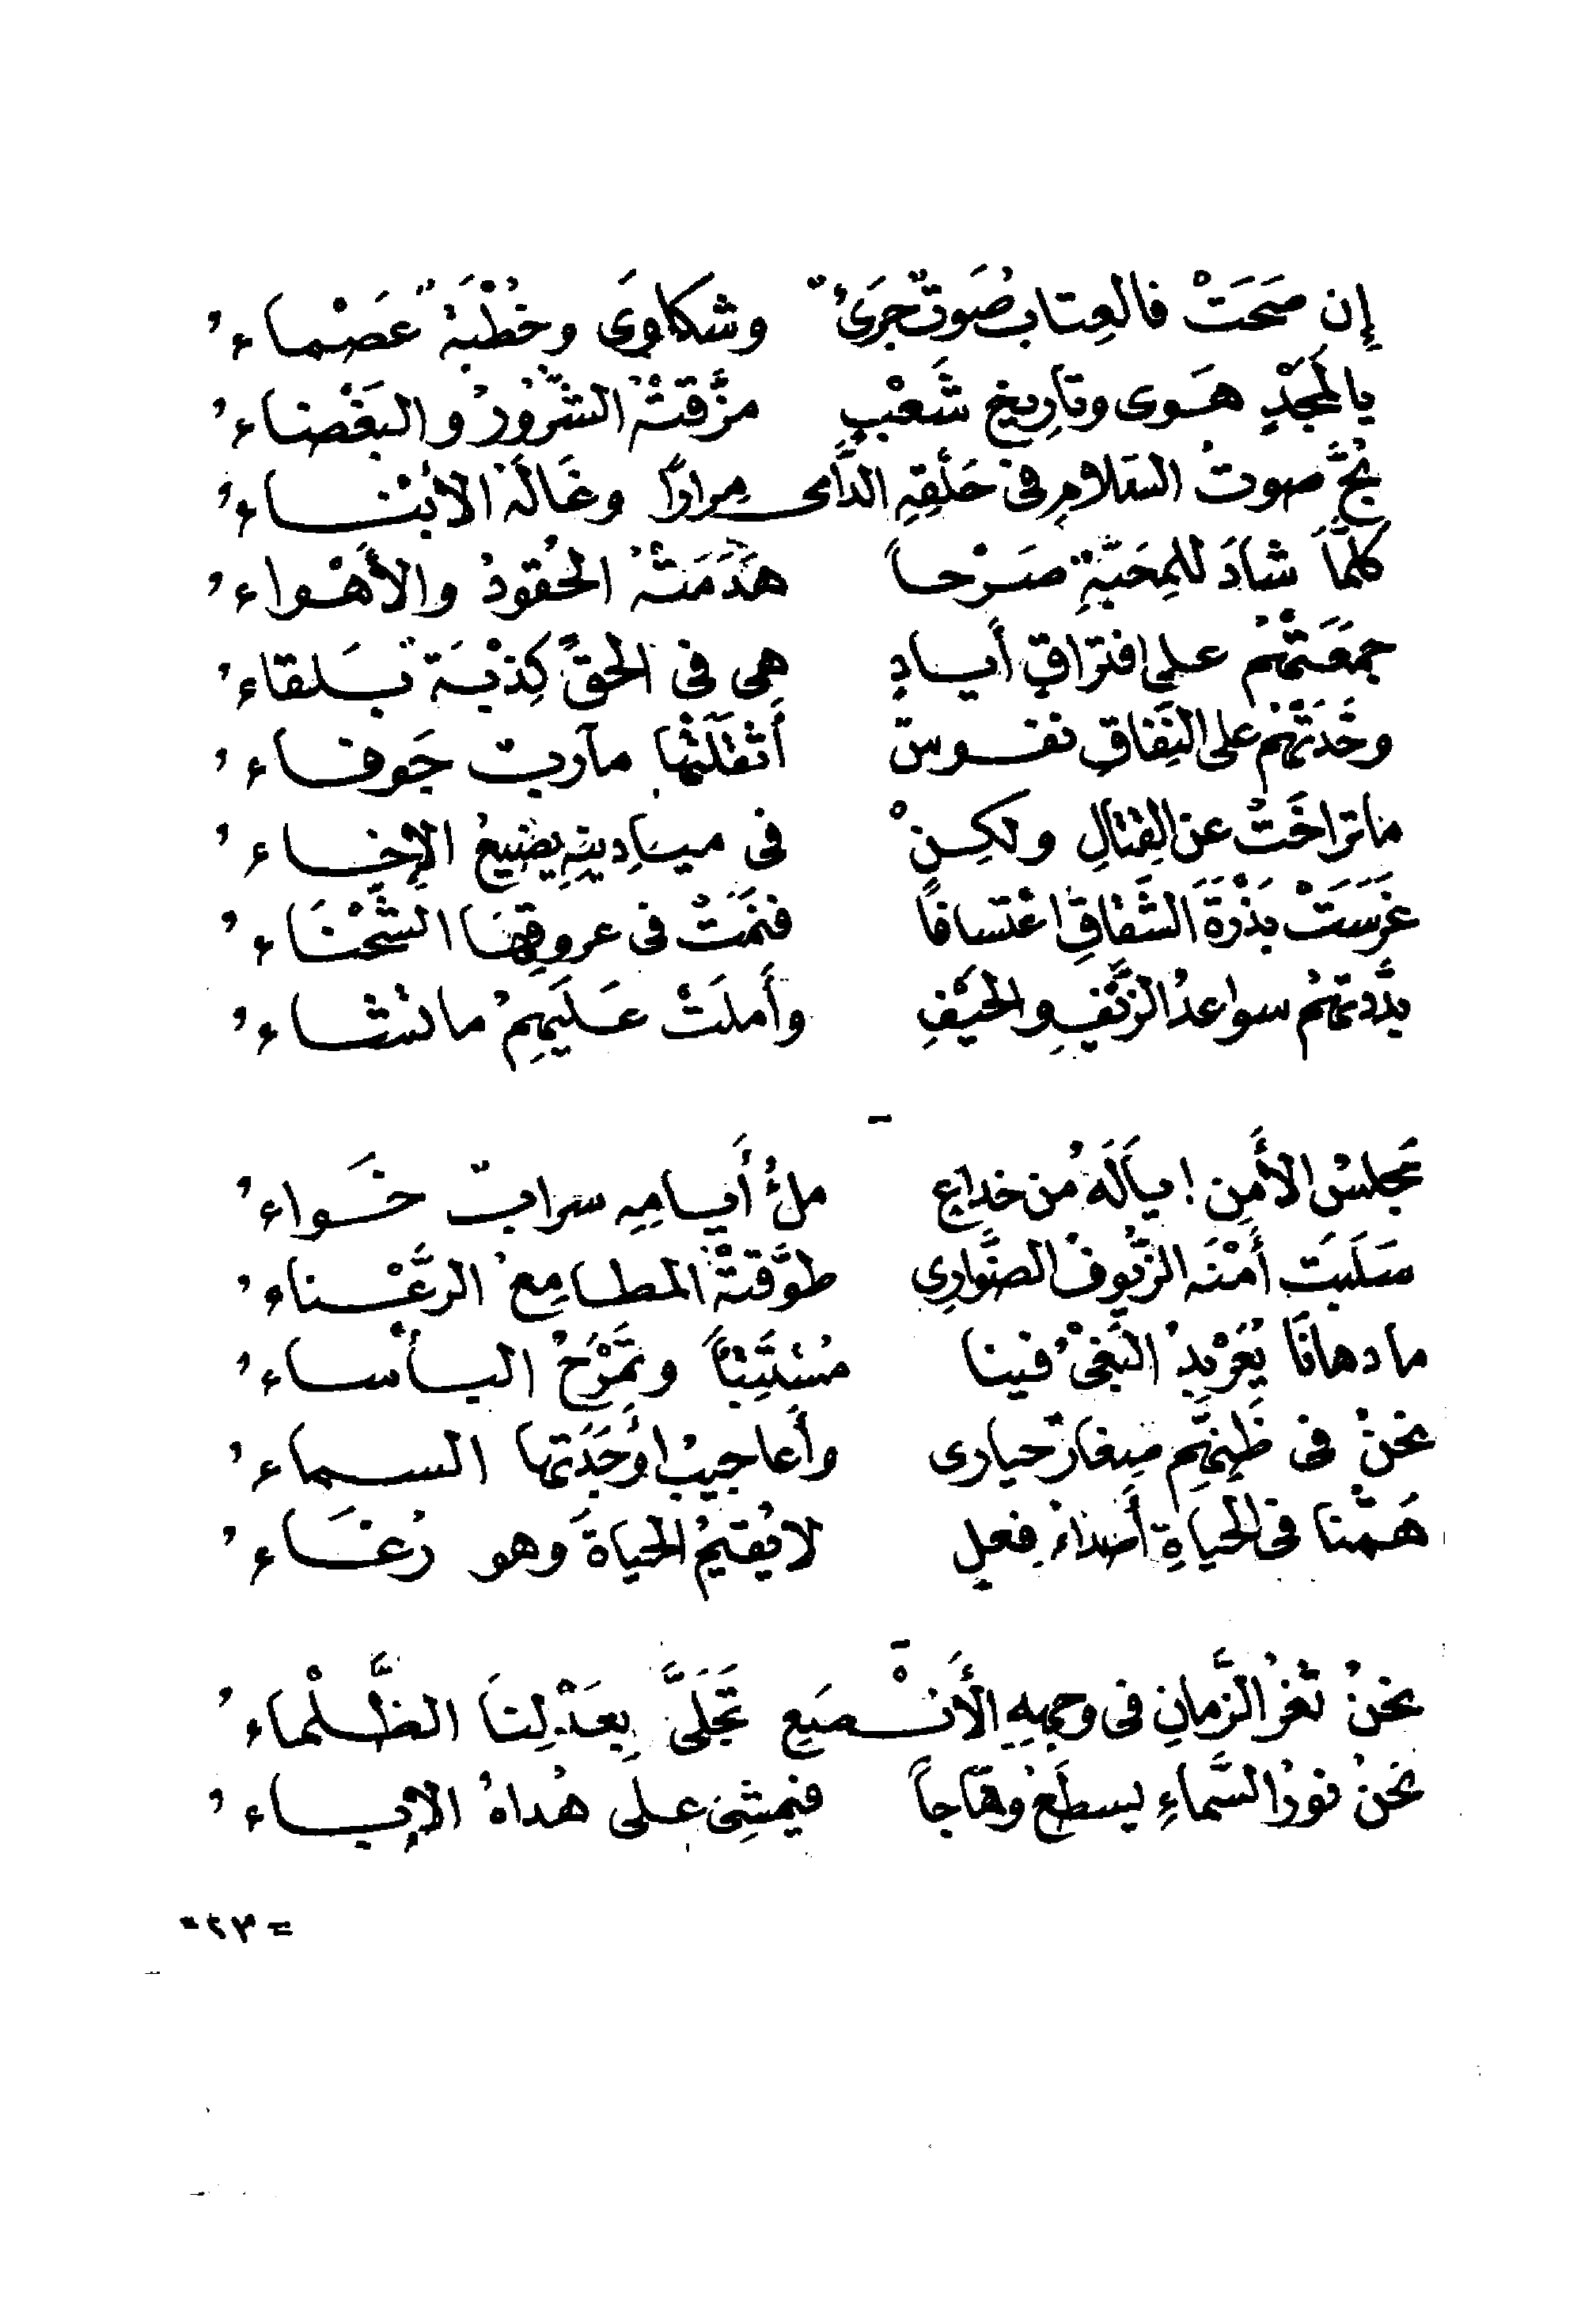 إن صَحَتْ فالعِتاب صَوتٌ جَرئٌ وشكاوَى وخُطْبَةٌ عَصْماءُ
يالمَجْدٍ هَوى وتاريخِ شَعْبٍ مزَّقتْهُ الشُّرورُ والبَغْضاءُ
بُحَّ صوتُ السَّلامِ فى حَلْقِهِ الدَّامى مِراراً وغَالَهُ الأبْناءُ
كلمَّا شادَ للمِحَبَّةِ صَرْحاً هَدَمَتْهُ الحُقودُ والأَهْواءُ
جمعَتْهُم على افتراقٍ أيادٍ هِى فى الحقِّ كِذْبَة بَلقاءُ
وحَّدَتْهُم على النِّفاقِ نفوسٌ أَثقَلَتْها مآربٌ جَوفاءُ
ما تراخَتْ عن القِتالِ ولكِنْ فى ميادينِهِ يضيعُ الإخاءُ
غَرَسَتْ بَذْرَةَ الشَّقاقِ اعْتسافاً فنمَتْ فى عروقِها الشَّحْنَاءُ
بدَّدتهمُ سواعدُ الزَّيْفِ والحَيْفِ وأَملَتْ عَلَيهِمُ ما تشاءُ
مجلسُ الأَمنِ ! يالَهُ من خداعٍ ملءُ أَيامِهِ سرابٌ خَواءُ
سَلَبَت أَمْنَه الزُّيوفُ الضَّوارِى طوَّقتْهُ المطامِعُ الرَّعْناءُ
ما دهانَا يُعَرْبِدُ البَغْىُ فينا مُسْتَتِبّاً وتَمْرَحُ البأساءُ
نحنُ فى ظَنِّهِم صِغارٌ حيارى وأَعاجيبُ أوْجَدَتها السماءُ
هَمُّنا فى الحياةِ أَصداءُ فِعلٍ لا يُقيمُ الحياةَ وهو رُغَاءُ
نحنُ ثغرُ الزَّمانِ فى وجهِهِ الأَنْصَعِ تَجَلَىَّ بِعَدْلِنَا الظَّلْماءُ
نحنُ نورُ السَّماءِ يسطَعُ وهَّاجاً فيمشِى على هُداهُ الإباءُ
= ٢٣ -